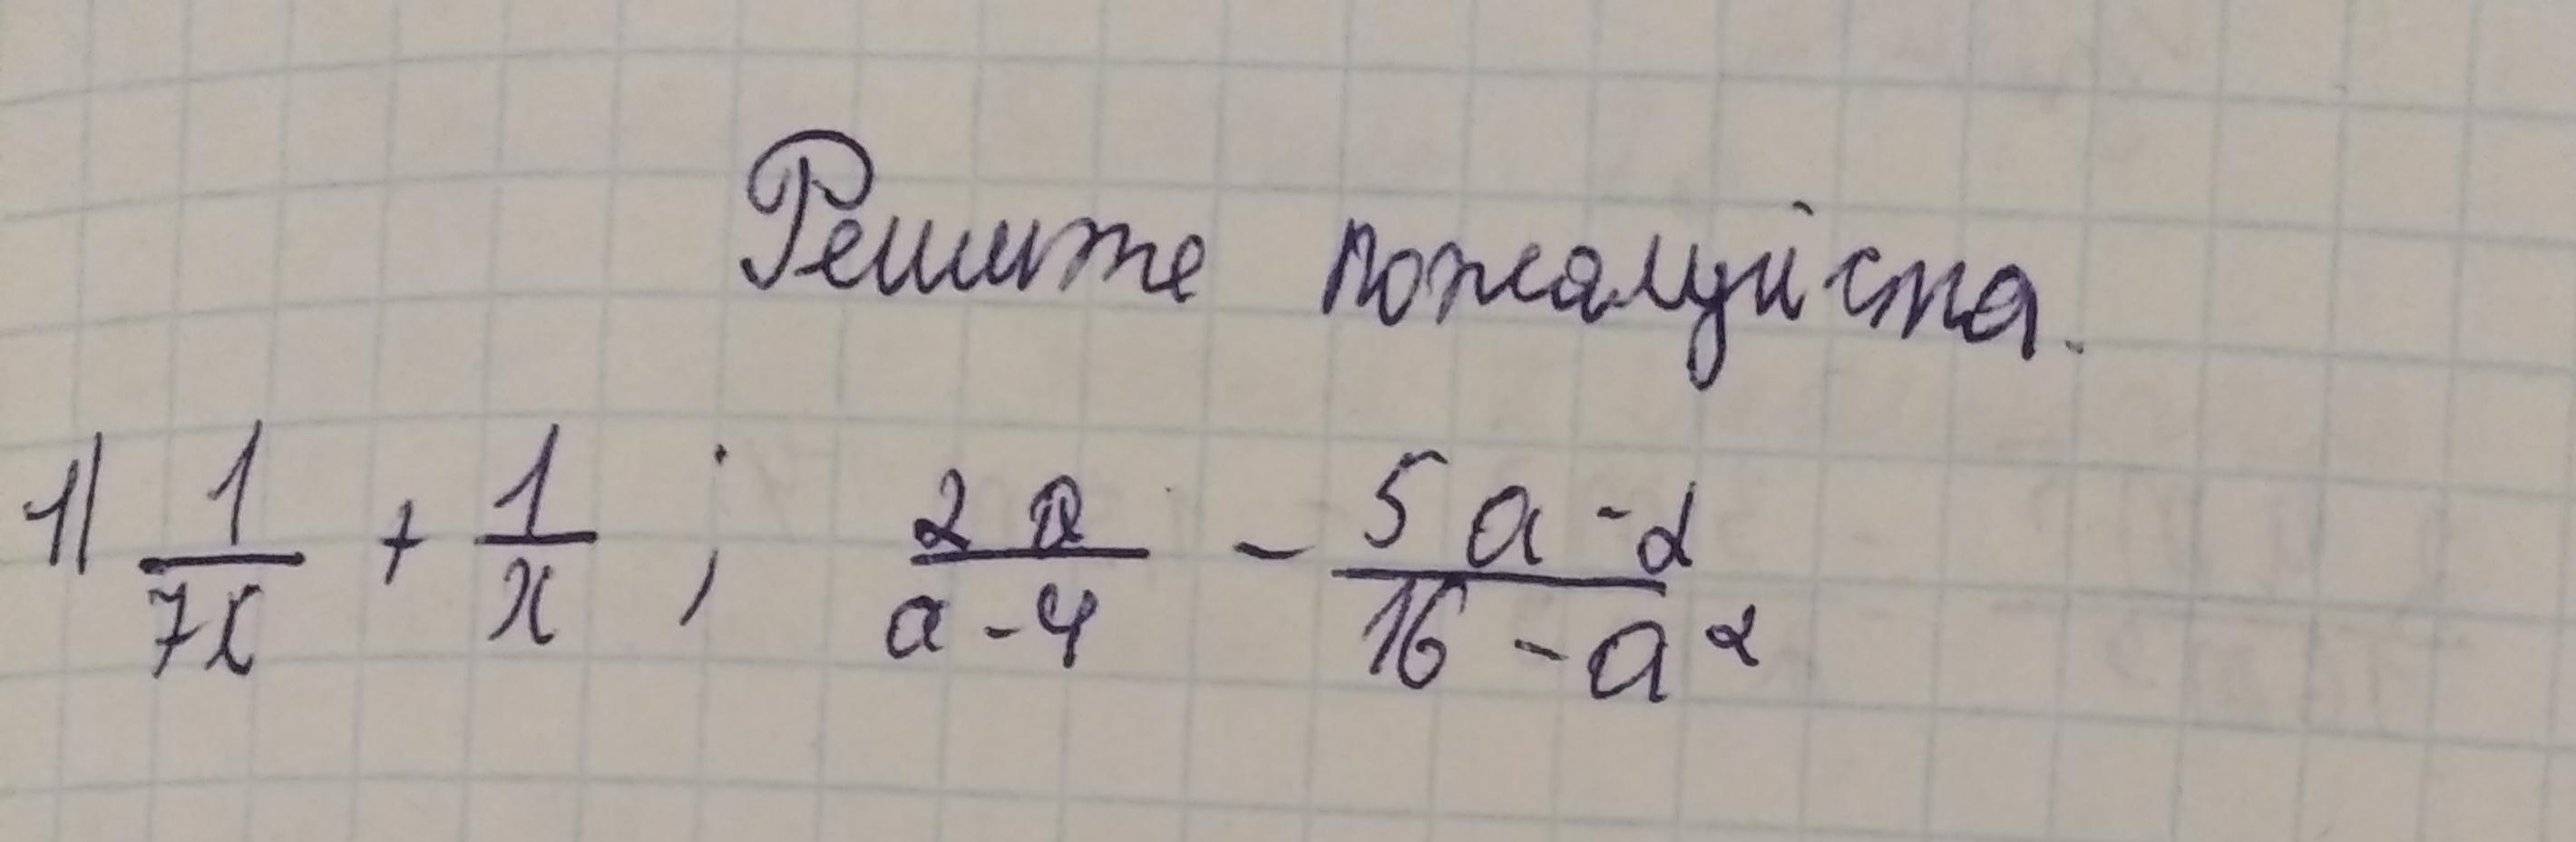 Решите пожалуйста.
1) 1/7x + 1/x ; 2a/a-4 - 5a-2/16-a²